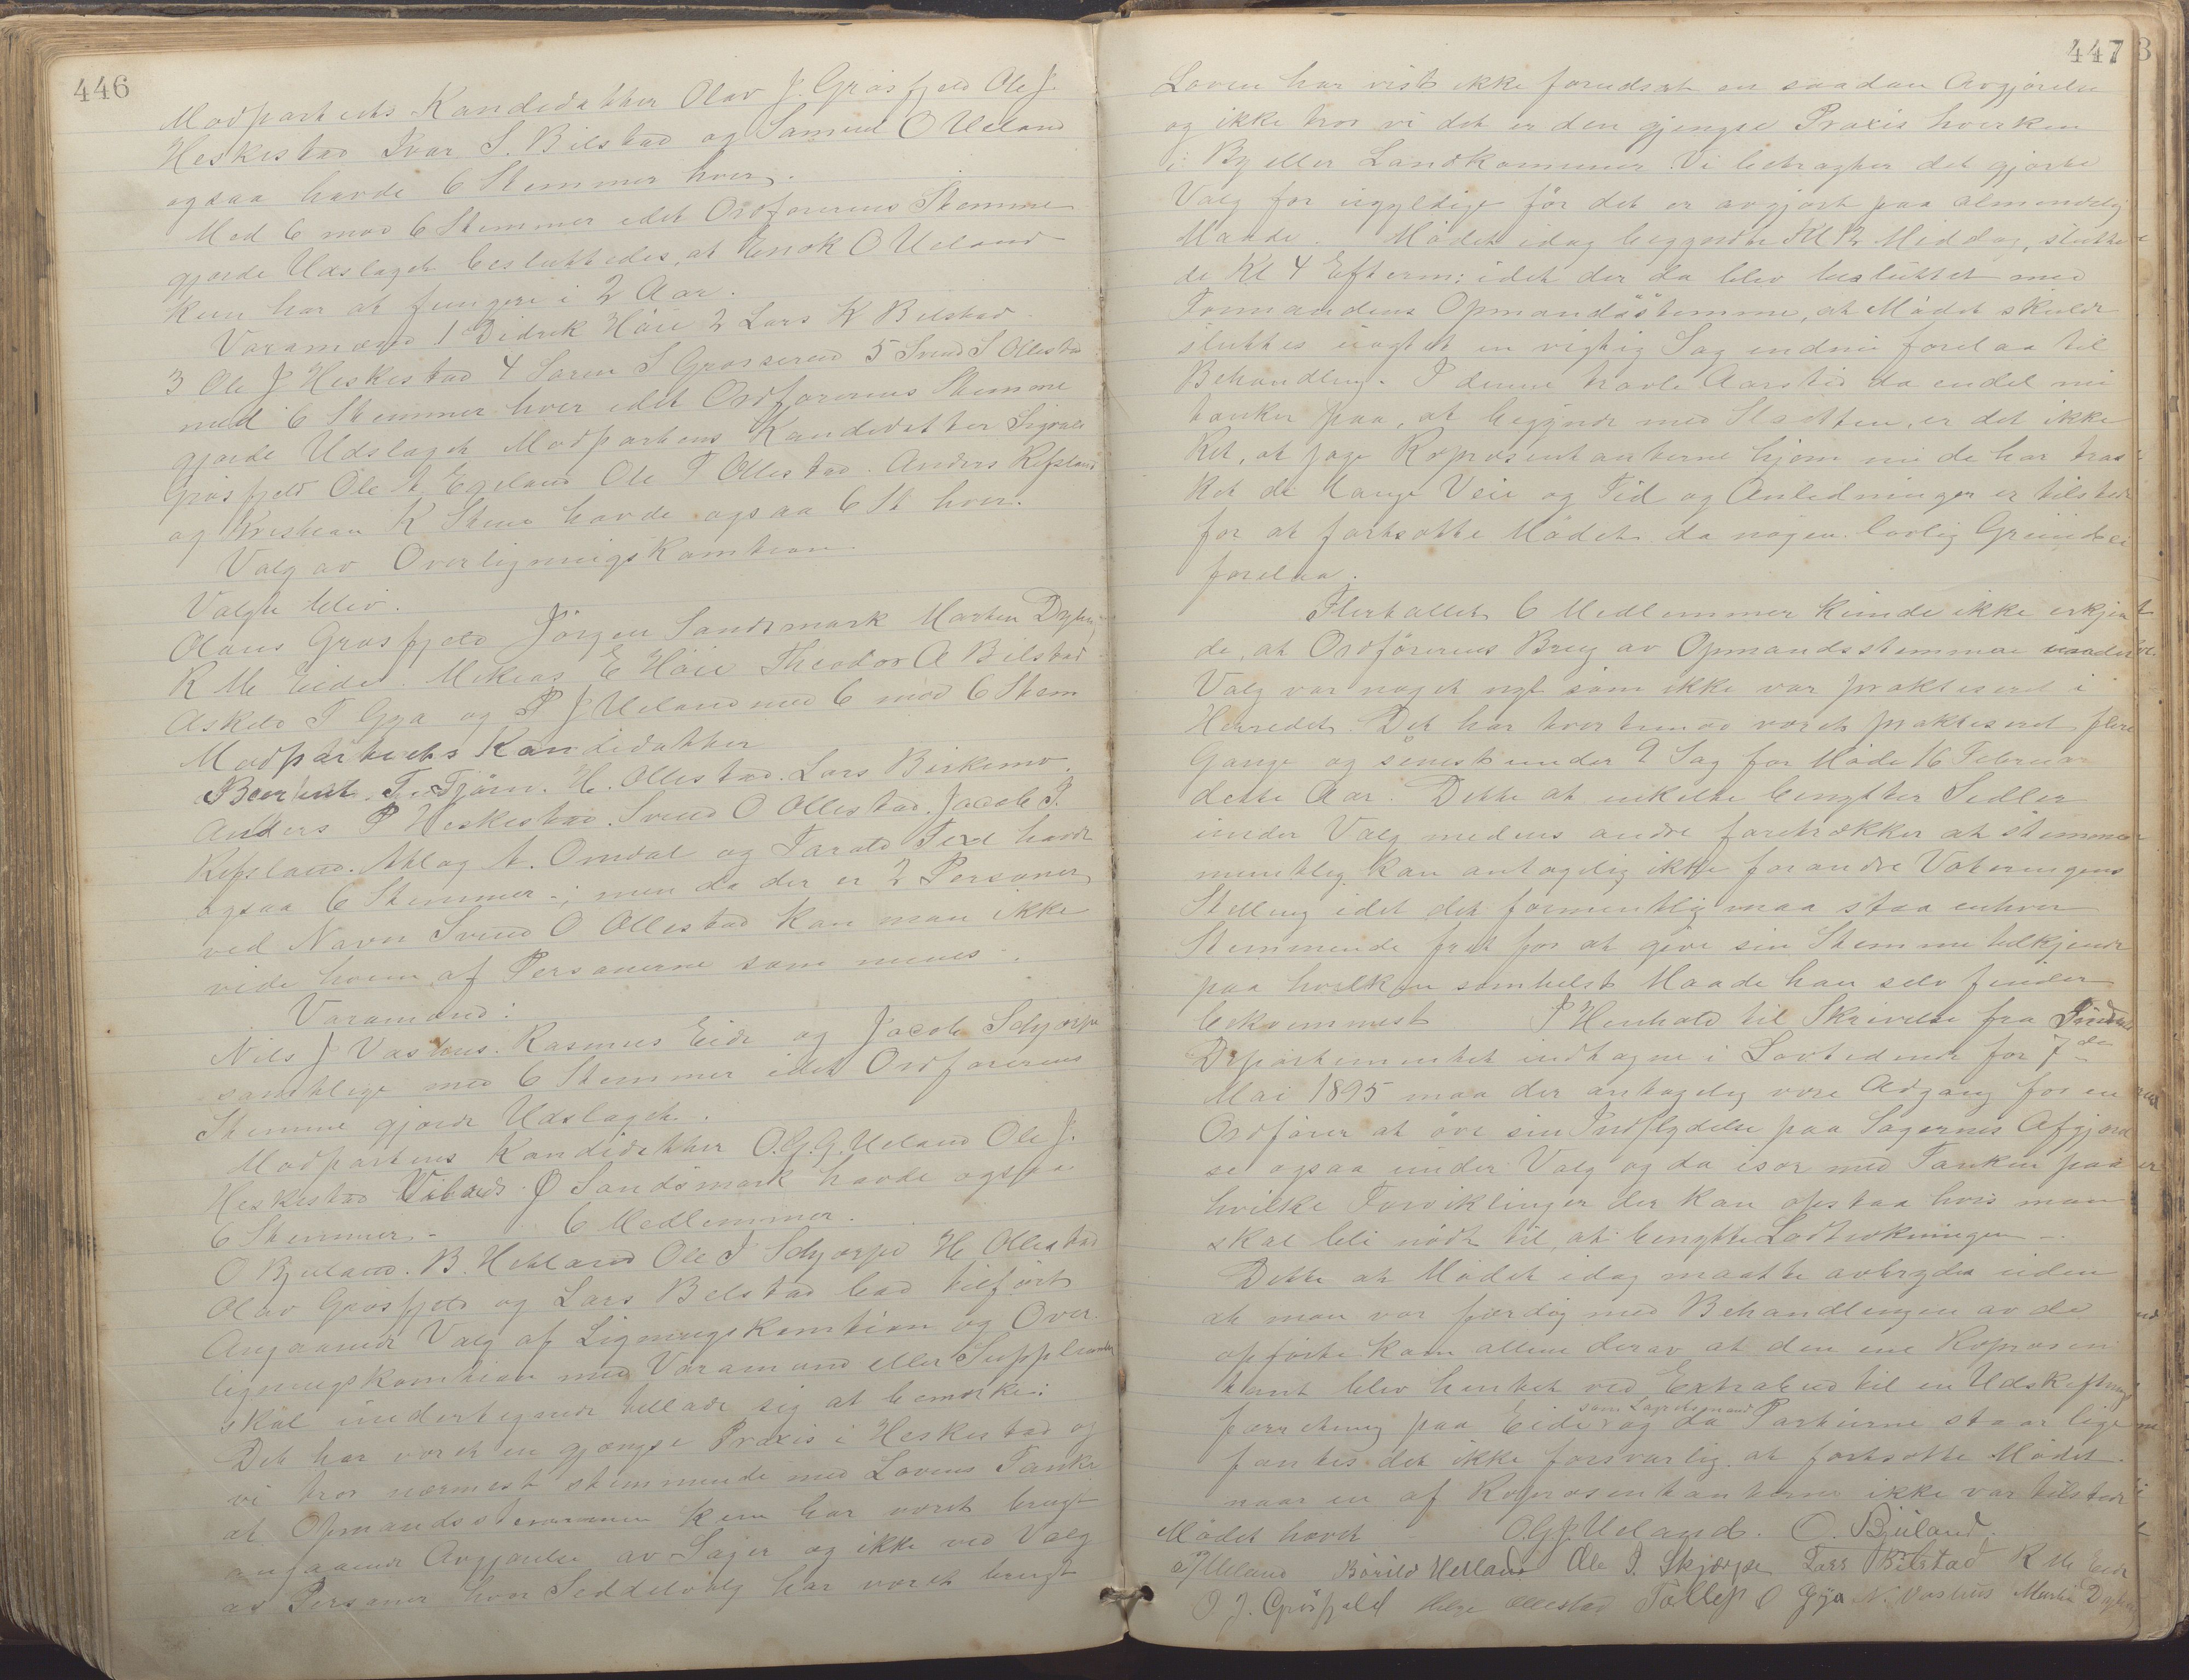 446
Modpartiets Kandidatter Olav J. Grøsfjeld Ole J.
Heskestad Ivar S. Bilstad og Samuel O Ueland
ogsaa havde 6 Stemmer hver.
Med 6 mod 6 Stemmer idet Ordførerens Stemme
gjorde Udslaget besluttedes, at Enok O Ueland
kun har at fungere i 2 Aar.
Varamænd 1 Didrik Høie 2 Lars K Bilstad
3 Ole J Heskestad 4 Søren S Grøsereid 5 Svend S Ollestad
med 6 Stemmer hver idet Ordførerens Stemme
gjorde Udslaget Modpartens Kandidatter Sigvald
Grøsfjeld Ole A. Egeland Ole T Ollestad. Anders Refsland
og Kristian K Steno havde ogsaa 6 St hver.
Valg av Overligningskomtion.
Valgte blev.
Olaus Grøsfjeld Jörgen Sandsmark Martin Dyben,
R M Eide. Mikias E Höie Theodor A Bilstad
Askild T Gya og P J Ueland med 6 mod 6 Stem
Modpartiets Kandidatter
Berent T. Tjörn. H. Ollestad. Lars Birkemo.
Anders P Heskestad. Svend O Ollestad. Jacob P.
Refsland. Atlag A. Omdal og Tarald Fed havde
ogsaa 6 Stemmer -; men da der er 2 Personer
ved Navn Svend O Ollestad kan man ikke
vide hvem af Personerne som menes.
Varamænd:
Nils J Vashus. Rasmus Eide og Jacob Schjærpe
samtlige med 6 Stemmer idet Ordførerens
Stemme gjorde Udslaget.
Modpartens Kandidatter O.G.J. Ueland Ole J.
Heskestad Ø Sandsmark havde ogsaa
6 Stemmer - 6 Medlemmer.
O Bjuland. B. Hetland Ole I Schjærpe H. Ollestad
Olav Grøsfjeld og Lars Bilstad bad tilført
Angaaende Valg af Ligningskomtion og Over-
ligningskomtion med Varamænd eller Supplianter
skal undertegnede tillade sig at bemærke:
Det har været en gjængse Praxis i Heskestad og
vi tror nærmest stemmende med Lovens Tanke
at Opmandsstemmen kun har været brugt
angaaende Avgjørelse av Sager og ikke ved Valg
av Personer hvor Seddelvalg har været brugt
447
Loven har vist ikke forudset en saadan Avgjørelse
og ikke tror vi det er den gjengse Praxis hverken
i By eller Landkommuner. Vi betragter det gjorte
Valg for ugyldige før det er avgjort paa almindelig
Maade. Mödet idag begyndte Kl 12 Middag, slutte
de Kl 4 Efterm; idet der da blev besluttet med
Formandens Opmandsstemme, at Mödet skulde
sluttes uagtet en vigtig Sag endnu forelaa til
Behandling. I denne travle Aarstid da endel nu
tænker paa, at begynde med Slaatten, er det ikke
Ret, at jage Repræsentanterne hjem nu de har træk
ket de lange Veie og Tid og Anledninger er tilstede
for at fortsætte Mödet da nogen lovlig Grund ei
forelaa.
Flertallet 6 Medlemmer kunde ikke erkjen
de, at Ordförerens Brug av Opmandsstemme under
Valg var noget nyt som ikke var praktiseret i
Herredet. Det har tvertimod været praktiseret flere
Gange og senest under 9 Sag for Møde 16 Februar
dette Aar. Dette at enkelte benytter Sedler
under Valg medens andre foretrækker at stemme
muntlig kan antagelig ikke forandre Voteringens
Stilling idet det formentlig maa staa enhver
Stemmende frit for at give sin Stemme tilkjende
paa hvilken somhelst Maade han selv finder
bekvemmest I Henhold til Skrivelse fra
Departementet indtagne i Lovtidende for 7de
Mai 1895 maa der antagelig være Adgang for en
Ordfører at öve sin Indflydelse paa Sagernes Afgjørel
se ogsaa under Valg og da især med Tanken paa
hvilke Forviklinger der kan opstaa hvis man
skal bli nödt til, at benytte Lodtrækningen -.
Dette at Mödet idag maatte avbrydes uden
at man var færdig med Behandlingen av de
opførte kom allene derav at den ene Repræsen
tant blev hentet ved Extrabud til en Udskiftnings
forretning paa Eide som Lagrettemand og da Partierne staar lige
fantes det ikke forsvarlig at fortsætte Mödet
naar en af Repræsentanterne ikke var tilstede
Mödet hævet O.G.J. Ueland. O. Bjuland.
Ueland Bårild Hetland Ole I. Skjærpe Lars Bilstad R M Eide
O. J. Grösfjeld Helge Ollestad Tollef O Gya N. Vashus Martin